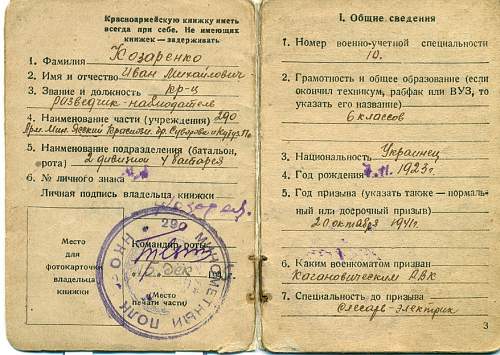 Красноармейскую книжку иметь
всегда при себе. Не имеющих
книжек — задерживать
1. Фамилия Козаренко
2. Имя и отчество Иван Михайлович
3. Звание и должность кр-ц
разведчик-наблюдатель
4. Наименование части (учреждения) 290
Арм. Мин. Ясский Краснозн. Ор. Суворова и Кутуз. П.
5. Наименование подразделения (батальон,
рота) 2 дивизион 4 батарея
6. № личного знака
Личная подпись владельца книжки
Место
для
фотокарточки
владельца
книжки
Командир роты
(Место
печати части)
290 МИНОМЕТНЫЙ ПОЛК
I. Общие сведения
1. Номер военно-учетной специальности
10.
2. Грамотность и общее образование (если
окончил техникум, рабфак или ВУЗ, то
указать его название)
6 классов
3. Национальность Украинец
4. Год рождения 1923 г.
5. Год призыва (указать также — нормаль-
ный или досрочный призыв)
20 октября 1941 г.
6. Каким военкоматом призван
Кагановическим РВК
7. Специальность до призыва
Слесарь-электрик
3